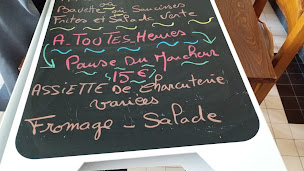 Bavette aux Saucisses
Frites et Salade Verte
A-TouTES-Heures
Pause Du Marcheur
15€
ASSIETTE DE Charcuterie
variées
Fromage - Salade